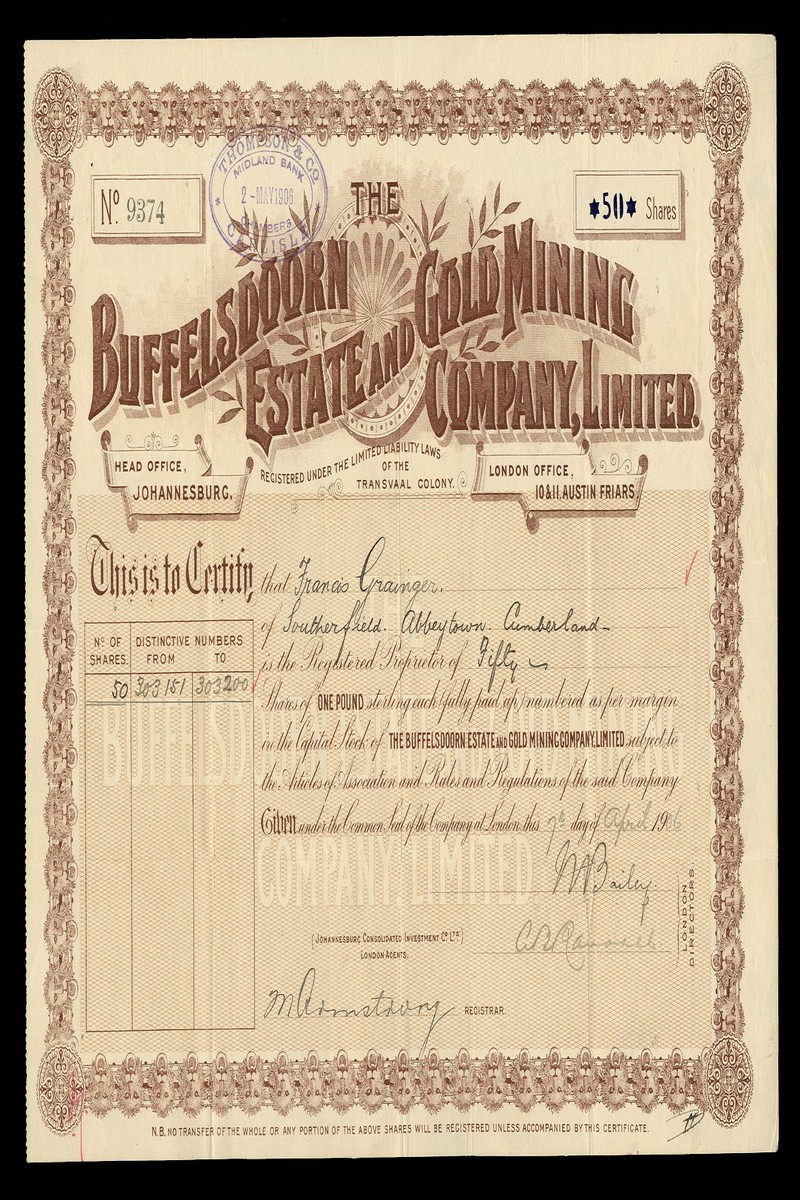 THOMPSON & CO
MIDLAND BANK
2-MAY 1906
CHAMBERS
CARLISLE
No. 9374
*50* Shares
THE
BUFFELSDOORN
ESTATE AND
GOLD MINING
COMPANY, LIMITED.
HEAD OFFICE,
JOHANNESBURG.
REGISTERED UNDER THE LIMITED LIABILITY LAWS
OF THE
TRANSVAAL COLONY.
LONDON OFFICE,
10 & 11, AUSTIN FRIARS
This is to Certify that Francis Grainger.
of Southerfield. Abbeytown. Cumberland-
is the Registered Proprietor of Fifty
Shares of ONE POUND sterling each (fully paid up) numbered as per margin
in the Capital Stock of THE BUFFELSDOORN ESTATE AND GOLD MINING COMPANY, LIMITED subject to
the Articles of Association and Rules and Regulations of the said Company
Given under the Common Seal of the Company at London this 7th day of April 1906
No. OF SHARES.
DISTINCTIVE NUMBERS
FROM TO
50 303151 303200
BUFFELSDOORN ESTATE AND GOLD MINING
COMPANY, LIMITED.
Bailey
LONDON DIRECTORS
(JOHANNESBURG CONSOLIDATED INVESTMENT Co. LTD)
LONDON AGENTS.
M Armstrong REGISTRAR.
N.B. NO TRANSFER OF THE WHOLE OR ANY PORTION OF THE ABOVE SHARES WILL BE REGISTERED UNLESS ACCOMPANIED BY THIS CERTIFICATE.